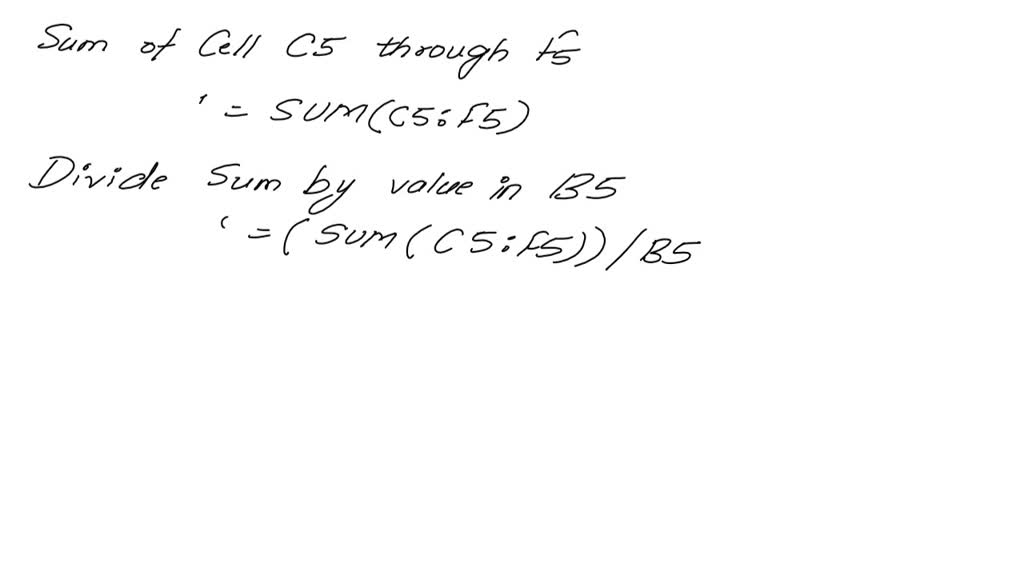 Sum of Cell C5 through F5
' = SUM(C5:F5)
Divide Sum by value in B5
' = (SUM(C5:F5))/B5